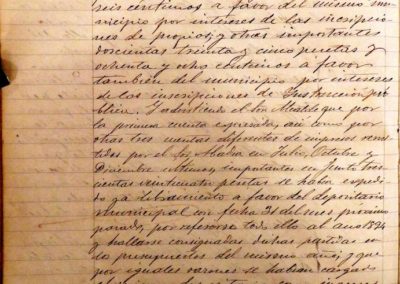 seis centimos a favor del mismo mu-
nicipio por intereses de las inscripcio-
nes de propios; y otras importantes
doscientas treinta y cinco pesetas y
ochenta y ocho centimos a favor
tambien del municipio por intereses
de las inscripciones de Instruccion pú-
blica. Y advertiendo el Sor Alcalde que por
la primera cuenta expresada, asi como por
otras tres cuentas diferentes de impresos
por el Sor en Julio, Octubre y
Diciembre ultimos, importantes en junto tres-
cientas veinticuatro pesetas se habia expedi-
do ya libramiento a favor del depositario
municipal con fecha 31 del mes proximo
pasado, por referirse todo ello al año 1894
y hallarse consignadas dichas partidas en
los presupuestos del mismo año; y que
por iguales razones se habian cargado